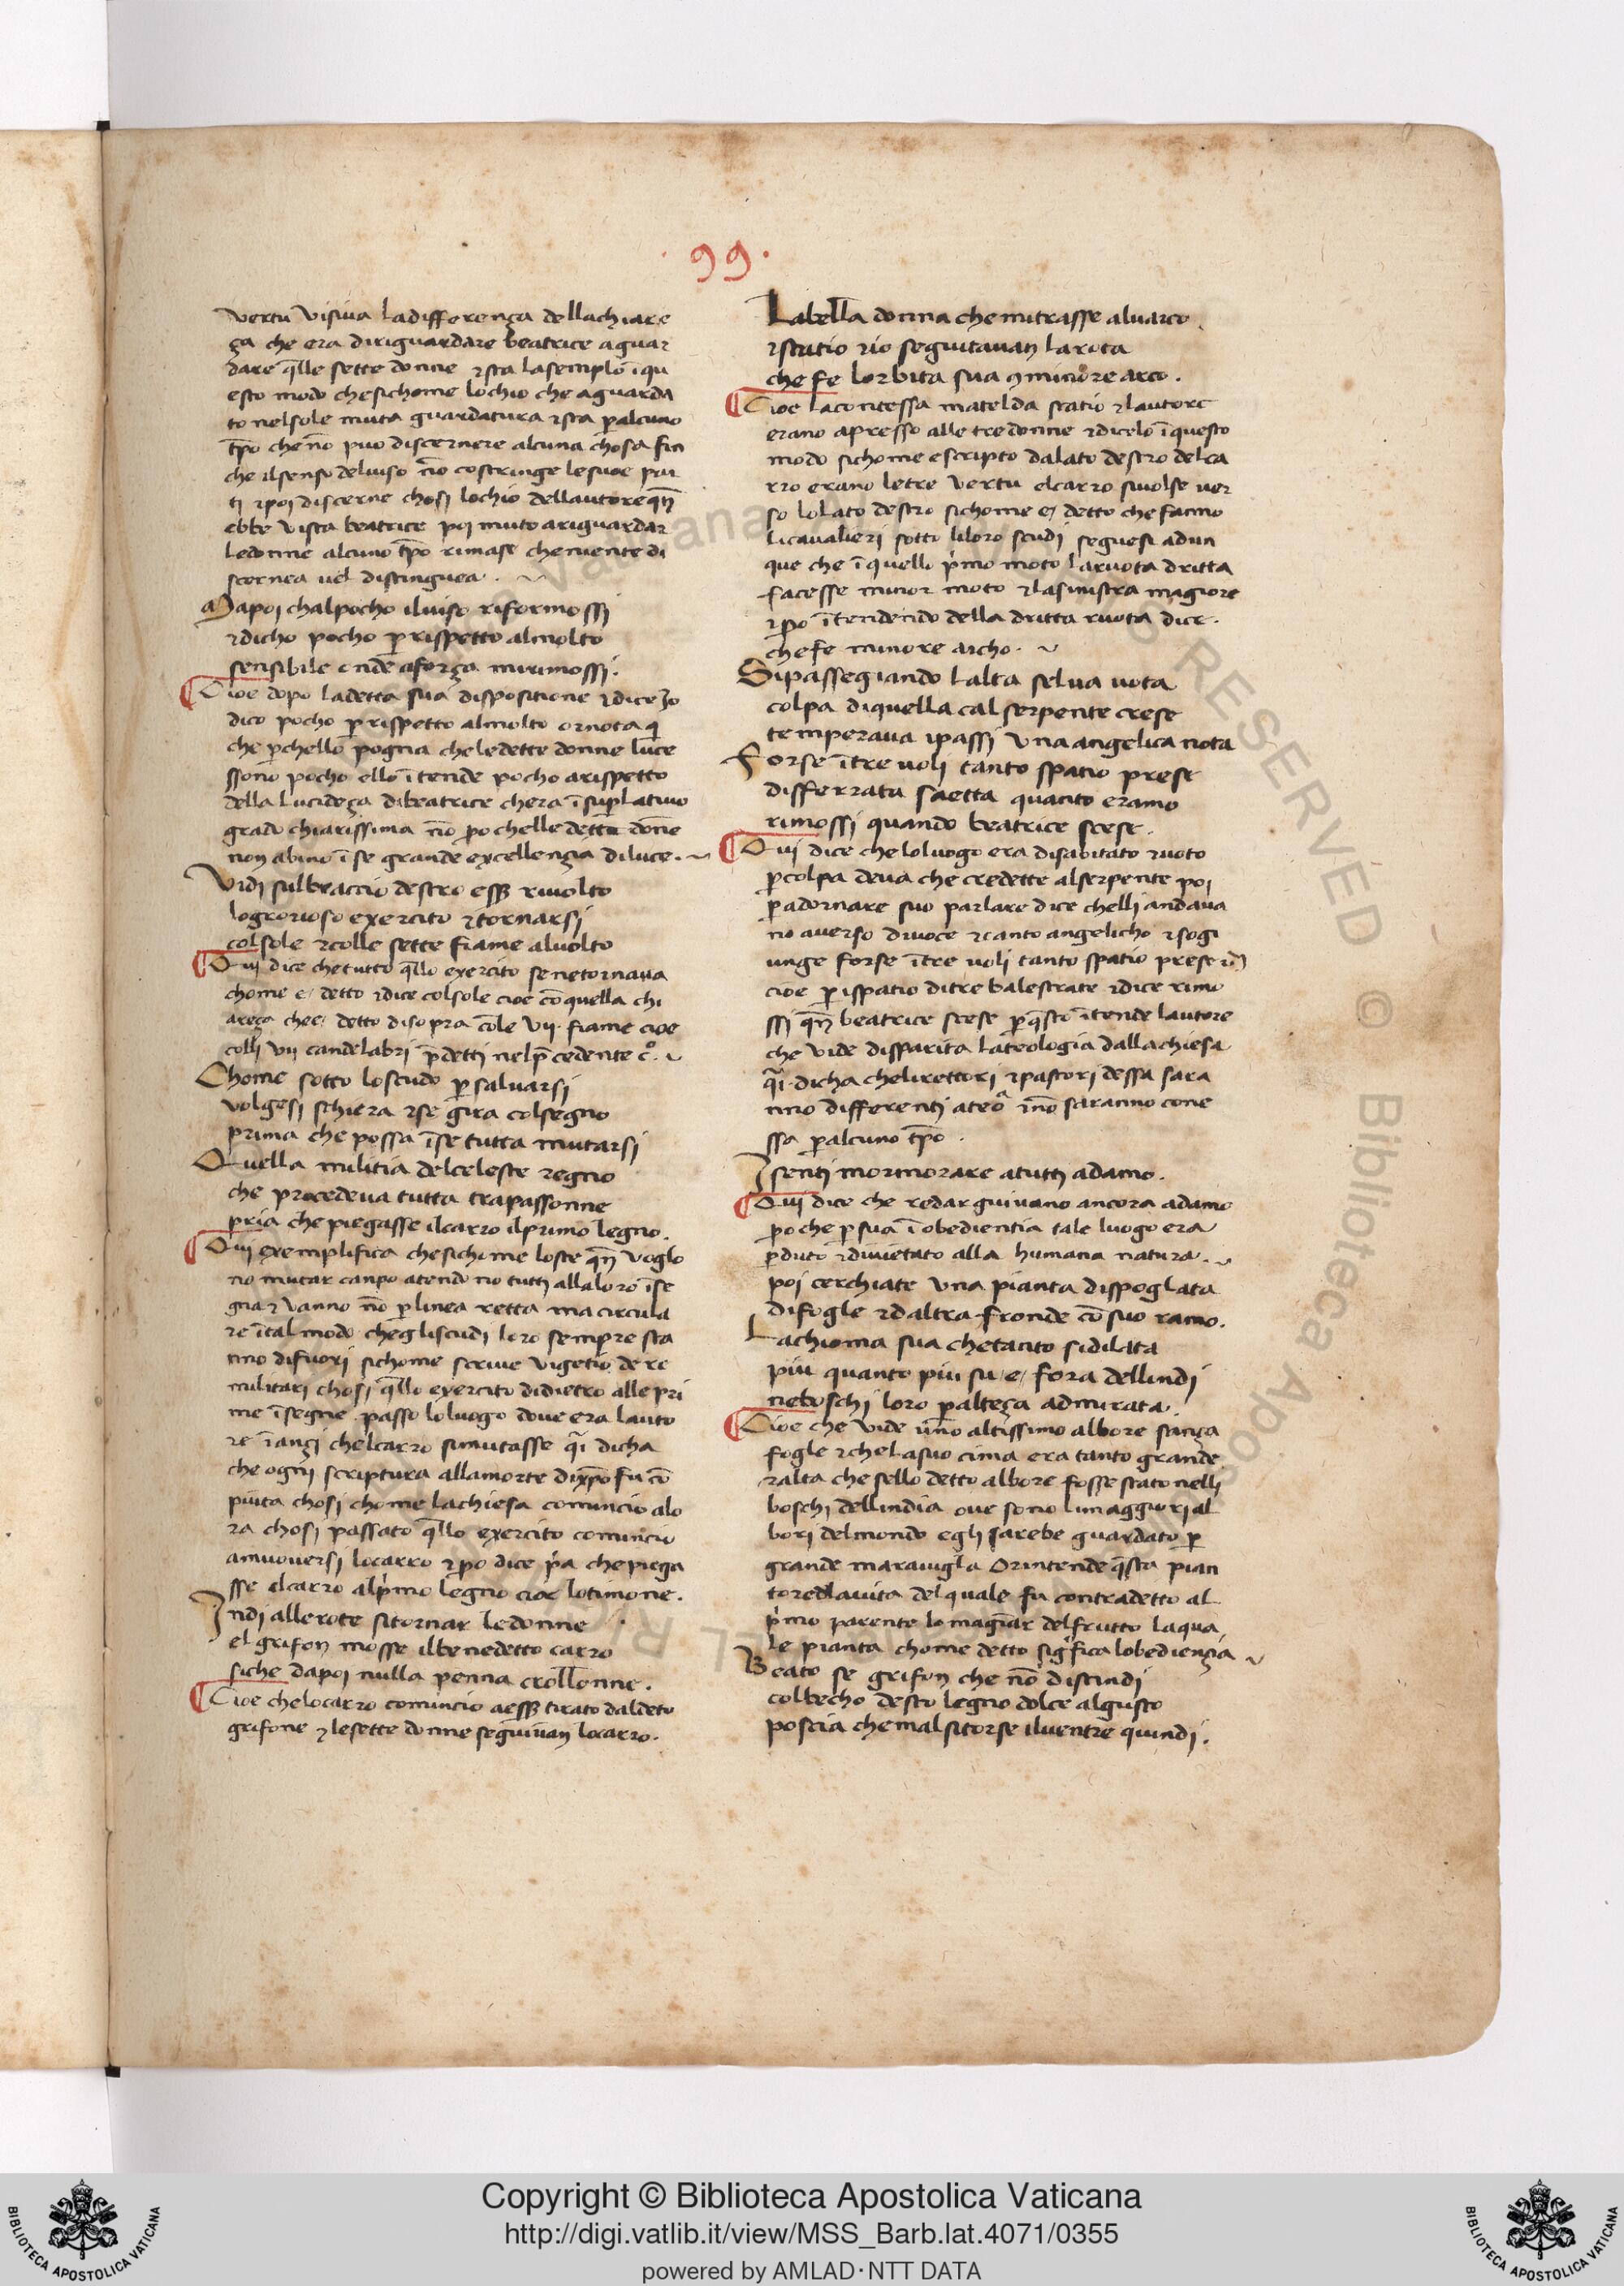 · 99 ·
vertu visiua ladifferença dellachiare
ça che era diriguardare beatrice aguar
dare q̄lle sette donne ⁊sta lasemplo ī qu
esto modo chesichome lochio che aguarda
to nelsole muta guardatura ⁊sta ꝑalcuno
tp̄o che nō puo discernere alcuna chosa fin
che ilsenso deluiso nō costringe lesuoe par
ti ⁊poi discerne chosi lochio dellautore qn̄
ebbe vista beatrice poi muto ariguardar
ledonne alcuno tp̄o rimase cheniente di
scernea uel distinguea .
Dapoi chalpocho iluiso riformossi
⁊dicho pocho ꝑrispetto almolto
sensibile onde aforça mirimossi.
Cioe dopo ladetta sua dispositione ⁊dice Jo
dico pocho ꝑrispetto almolto ornota q̄
che ꝑchello pogna cheledette donne luce
ssono pocho ello ītende pocho arispetto
della lucideça dibeatrice chera ī suꝑlatiuo
grado chiarissima nō ꝑo chelle dette dōne
non abino ī se grande excellençia diluce.
Vidi sulbraccio destro esẜ riuolto
logrorioso exercito ⁊tornarsi
colsole ⁊colle sette fiame aluolto
Qui dice chetutto q̄llo exercito senetornaua
chome e detto ⁊dice colsole cioe cō quella chi
areça chee detto disopra cōle vij. fiame cioe
colli vij candelabri p̄detti nelp̄cedente c°.
Chome sotto loscudo ꝑ saluarsi
volgesi schiera ⁊se gira colsegno
prima che possa īse tutta mutarsi
Quella militia delceleste regno
che procedeua tutta trapassonne
pria che piegasse ilcarro ilprimo legno.
Qui exemplifica chesichome loste qn̄ voglo
no mutar canpo atendono tutti allaloro īse
gna ⁊ vanno nō ꝑ linea retta ma circula
re ītal modo chegliscudi loro sempre sta
nno difuori sichome scriue vigetio de re
militari chosi q̄llo exercito didietro alle pri
me īsegne passo loluogo doue era lauto
re īançi chelcarro simutasse q̄i dicha
che ogni scriptura allamorte dixp̄o fu cō
piuta chosi chome lachiesa comincio alo
ra chosi passato q̄llo exercito comincio
amuouersi locarro ⁊ꝑo dice p̄a chepiega
sse elcarro alp̄imo legno cioe lotimone.
Indi allerote sitornar ledonne
el grifon mosse ilbenedetto carro
siche dapoi nulla penna crollonne.
Cioe chelocarro comincio aesẜ tirato daldeto
grifone ⁊ lesette donne seguiuan locarro.
Labella donna chemitrasse aluarco
⁊statio ⁊io seguitauan larota
che fe lorbita sua ꝯminore arco.
Cioe lacontessa matelda statio ⁊lautore
erano apresso alle tredonne ⁊dicelo ī questo
modo sichome escripto dalato destro delca
rro erano letre vertu elcarro siuolse uer
so lolato destro sichome e detto chefanno
licaualieri sotto liloro scudi seguesi adun
que che ī quello p̄imo moto laruota dritta
facesse minor moto ⁊lasinistra magiore
⁊ꝑo ītendendo della dritta ruota dice.
chefe minore archo.
Sipassegiando lalta selua uota
colpa diquella cal serpente crese
temperaua ipassi vna angelica nota
Forse ītre uoli tanto spatio prese
disferrata saetta quanto eramo
rimossi quando beatrice scese.
Qui dice che loluogo era disabitato ⁊uoto
ꝑcolpa deua che credette alserpente poi
ꝑadornare suo parlare dice chelli andaua
no auerso diuoce ⁊canto angelicho ⁊sogi
unge forse ītre uoli tanto spatio prese
cioe ꝑ ispatio ditre balestrate ⁊dice rimo
ssi qn̄ beatrice scese ꝑq̄sto ītende lautore
che vide disparita lateologia dallachiesa
q̄i dicha chelirettori ⁊pastori dessa sara
nno differenti ateoᵃ ⁊nō saranno cone
ssa ꝑalcuno tp̄o .
Jsenti mormorare atutti adamo.
Qui dice che redarguiuano ancora adamo
ꝑo che ꝑ sua īobedientia tale luogo era
ꝑduto ⁊diuietato alla humana natura.
poi cerchiate vna pianta dispoglata
difogle ⁊daltra fronde cō suo ramo.
Lachioma sua chetanto sidilata
piu quanto piu su e fora dellindi
neboschi loro ꝑalteça admirata.
Cioe che vide vno altissimo albore sança
fogle ⁊chelasuo cima era tanto grande
⁊alta che sello detto albore fosse stato nelli
boschi dellindia oue sono limaggiori al
bori delmondo egli sarebe guardato ꝑ
grande marauigla Orintende q̄sta pian
to redlauita delquale fu contradetto al
p̄imo parente lo magiar delfrutto laqua
le pianta chome detto sigᵢfica lobediençia
Beato se grifon che nō discindi
colbecho desto legno dolce algusto
poscia chemalsitorse iluentre quindi.
Copyright © Biblioteca Apostolica Vaticana
http://digi.vatlib.it/view/MSS_Barb.lat.4071/0355
powered by AMLAD·NTT DATA